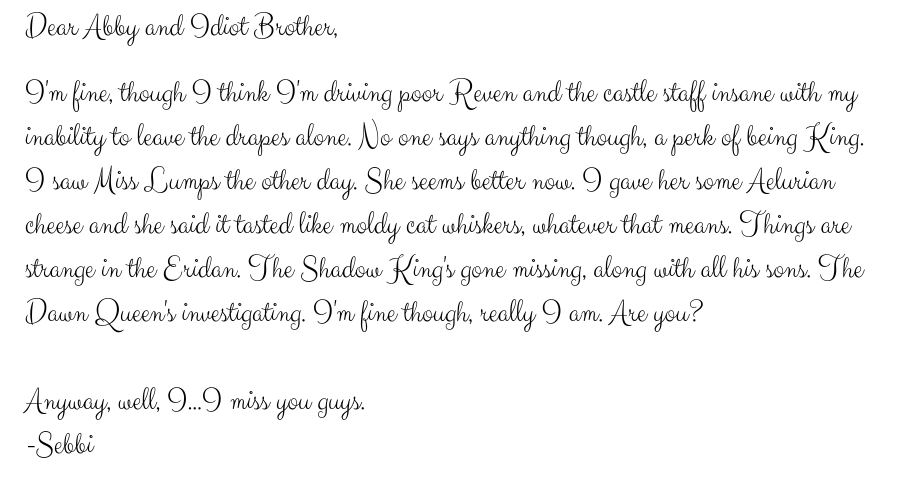 Dear Abby and Idiot Brother,
I'm fine, though I think I'm driving poor Reven and the castle staff insane with my
inability to leave the drapes alone. No one says anything though, a perk of being King.
I saw Miss Lumps the other day. She seems better now. I gave her some Aelurian
cheese and she said it tasted like moldy cat whiskers, whatever that means. Things are
strange in the Eridan. The Shadow King's gone missing, along with all his sons. The
Dawn Queen's investigating. I'm fine though, really I am. Are you?
Anyway, well, I...I miss you guys.
-Sebbi